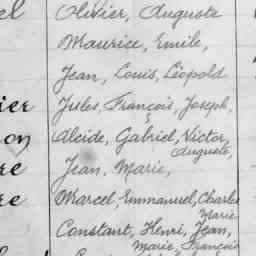 el Olivier, Auguste
Maurice, Emile,
Jean, Louis, Léopold
ier Jules, François, Joseph,
on Alcide, Gabriel, Victor,
Auguste,
re Jean, Marie,
re Marcel, Emmanuel, Charles
Marie
Constant, Henri, Jean,
Marie, François